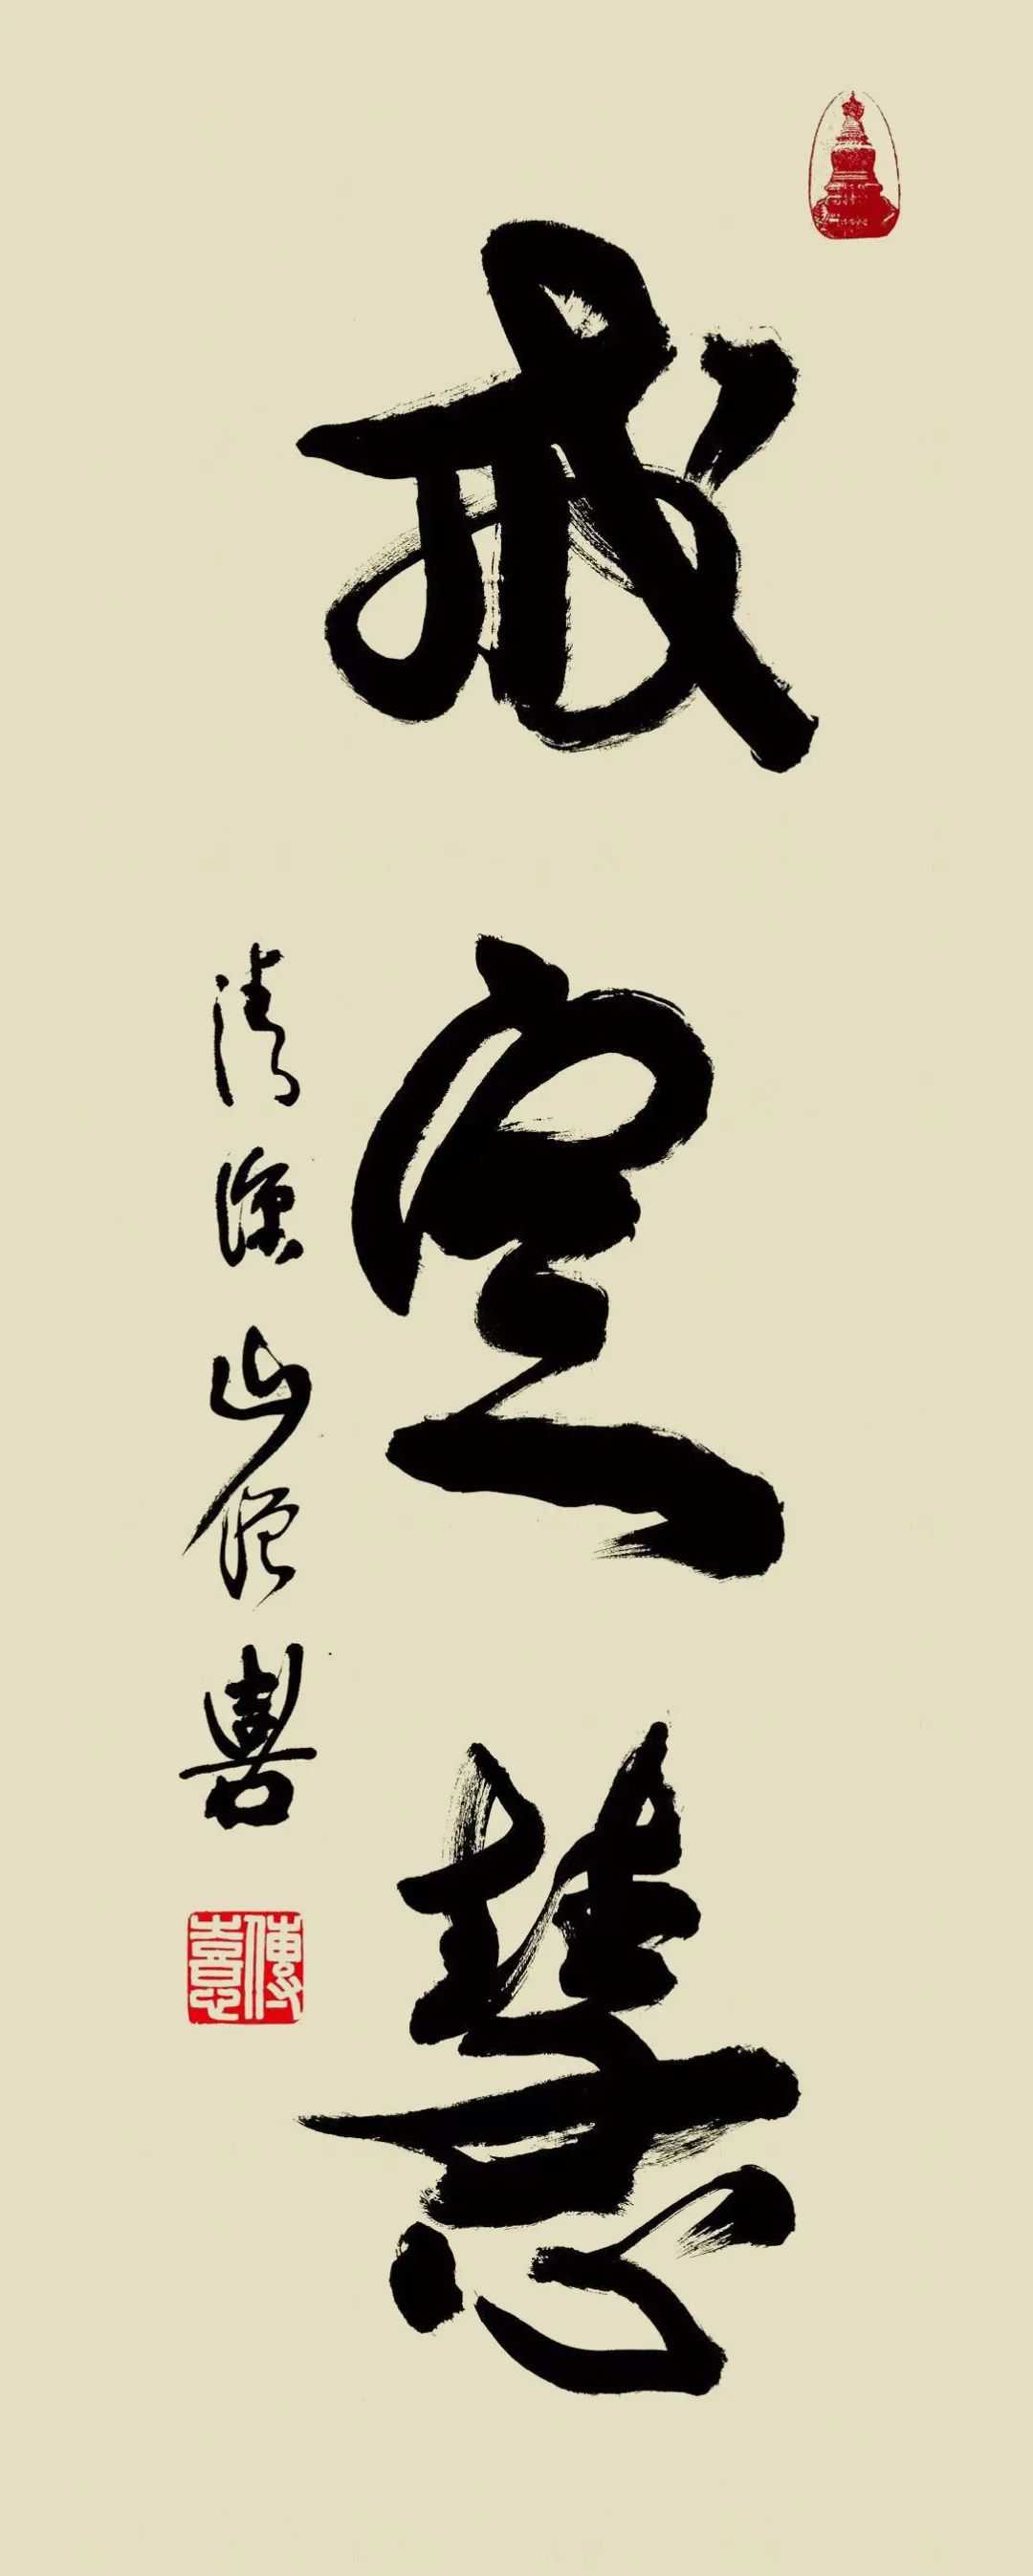 戒定慧
清凉山僧 喜
傳喜